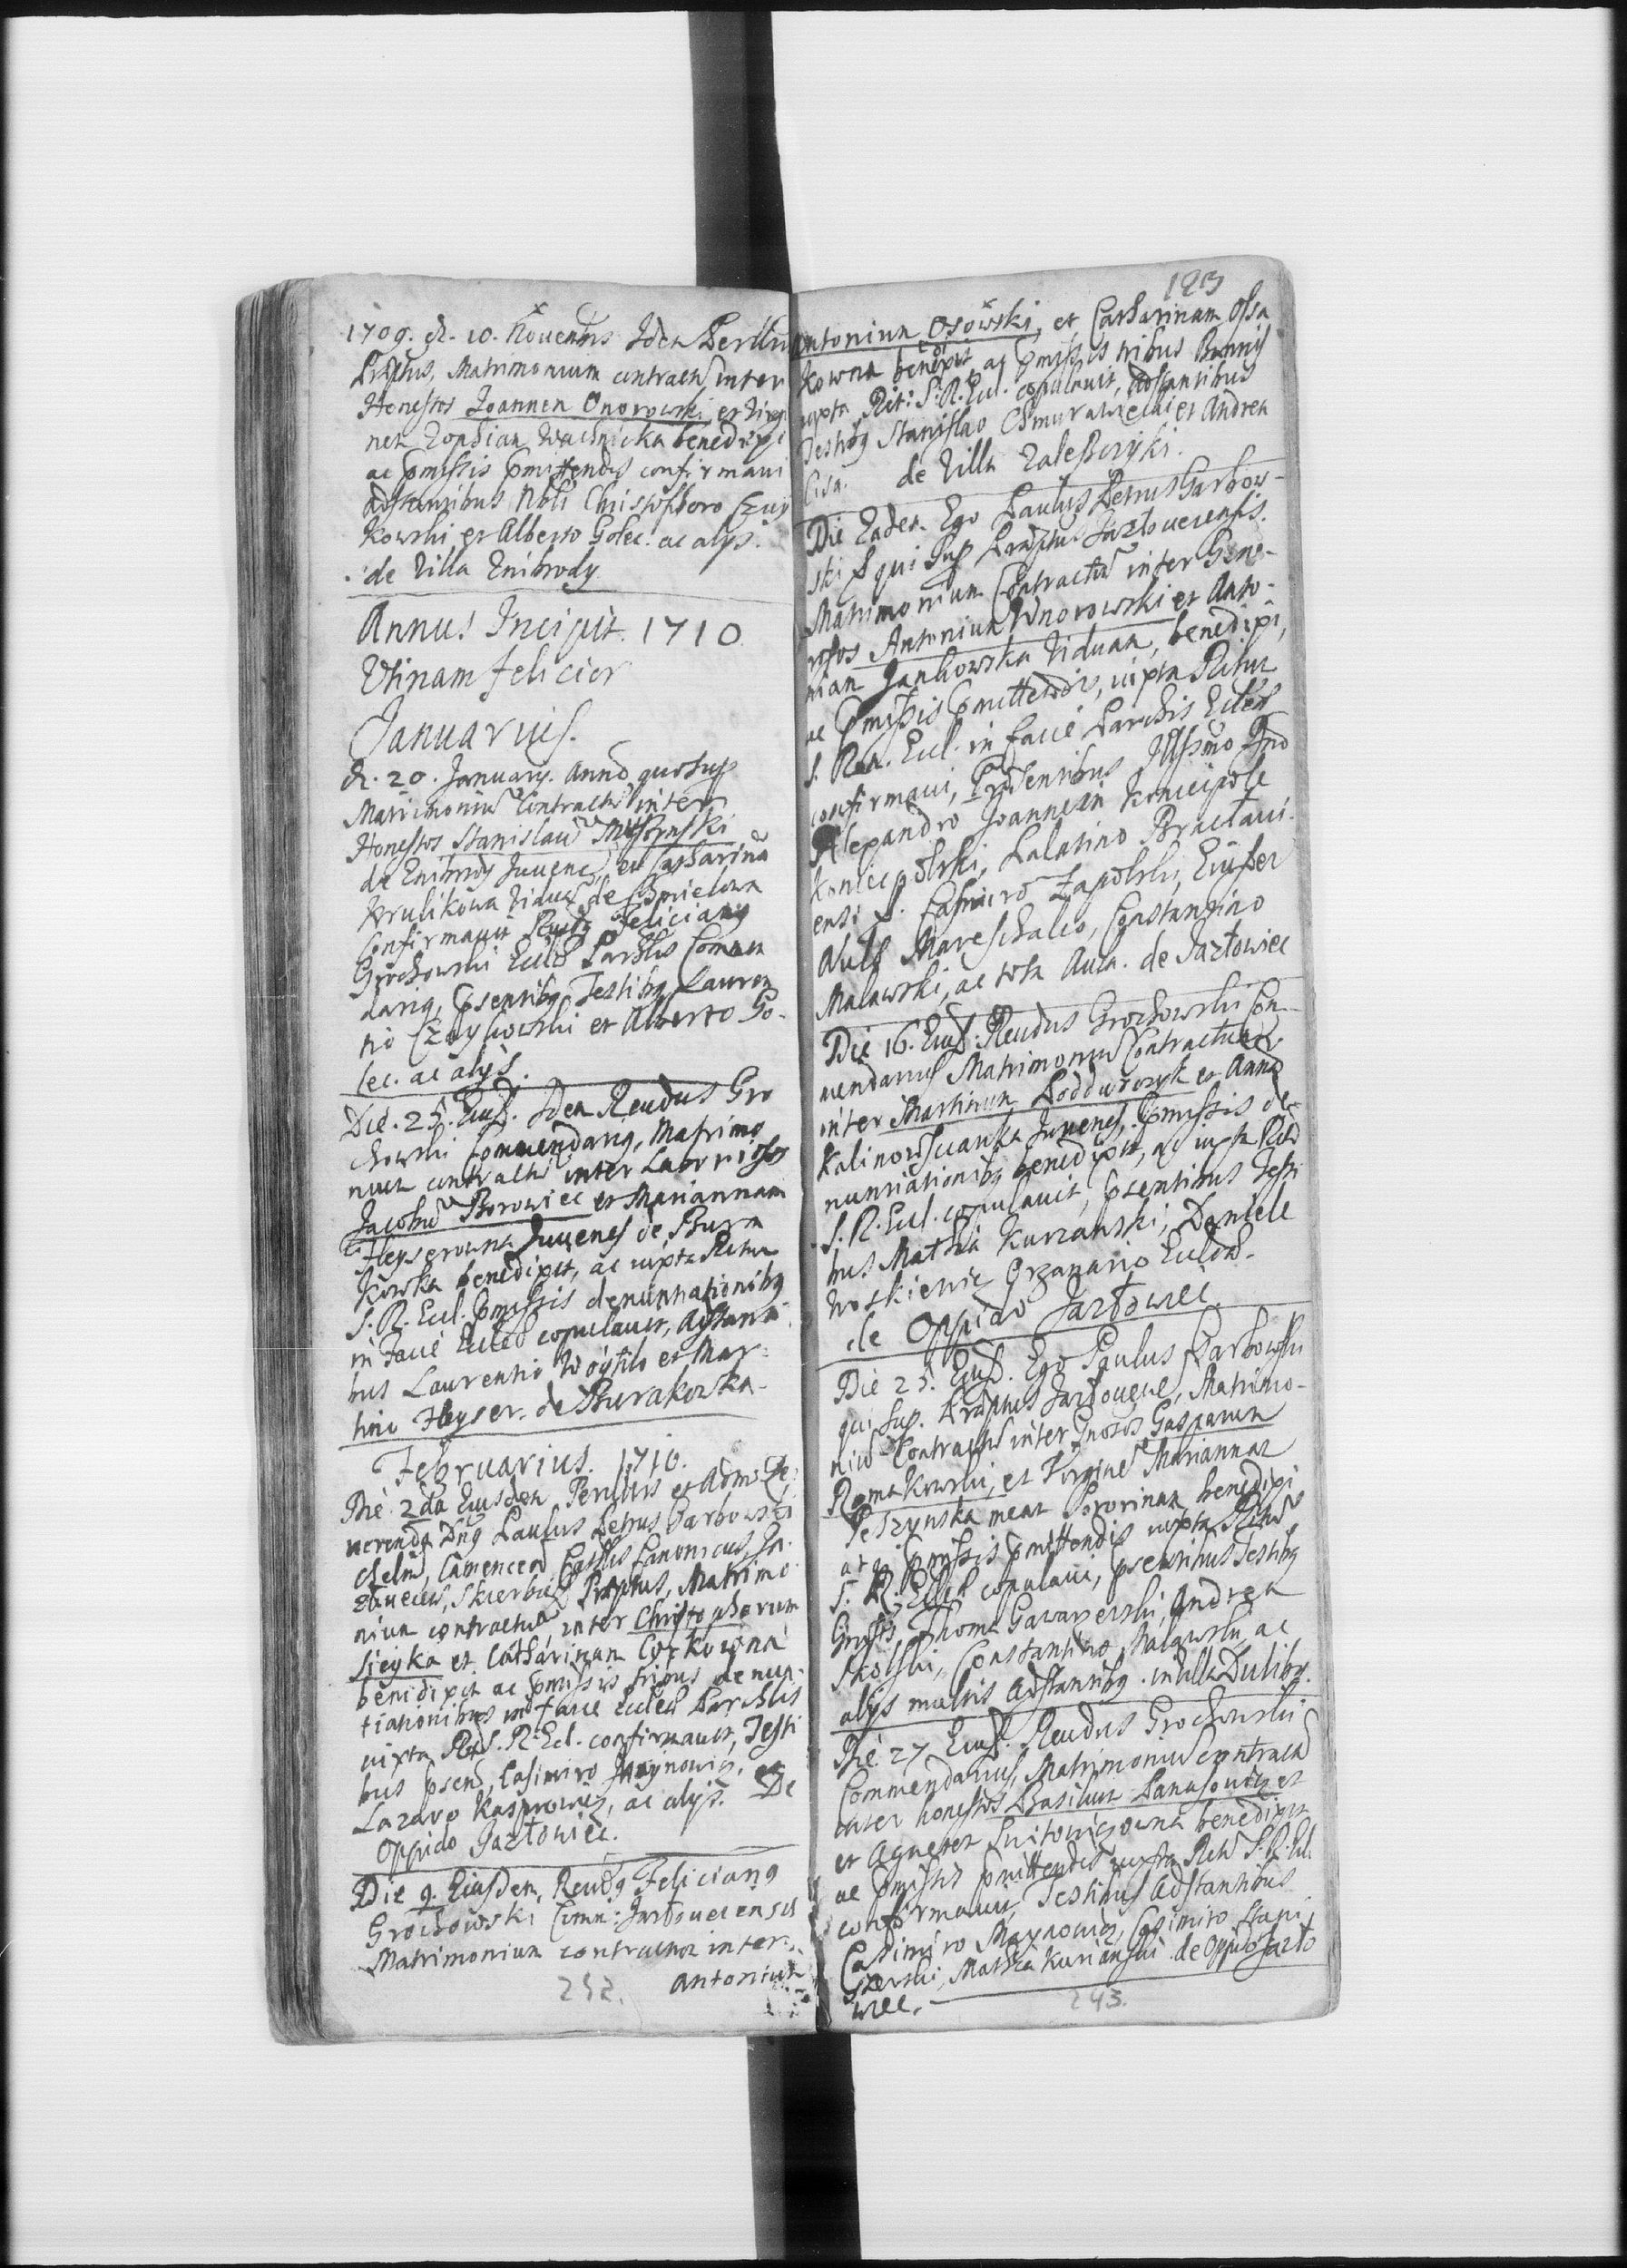 1709. d. 10. Novembris Idem Perillus
Praeptus, Matrimonium contractu inter
Honestos Joannem Onorowski et Virgi
nem Zophiam Wachnicka benedixi
ac praemissis praemittendis confirmavi
adstantibus Nobli Christophoro Czuy
kowski et Alberto Golec. ac alys.
de Villa Znibrody
Annus Incipit. 1710
Utinam felicior
Januarius.
d. 20. January. Anno quo sup
Matrimoniu Contractu inter
Honestos Stanislau
de Znibrody Juvene, et Catharina
Krulikowa Vidua de Chmielowa
confirmavit Rendg Feliciang
Grochowski Eccl Parchlis Commen
darig, psentibg Testibg Lauren
tio Czuykowski et Alberto Go-
lec. ac alys.
Die. 25. Eiusd. Idem Rendus Gro
chowski Commendarig, Matrimo
nium contractu inter Laboriosos
Jacobu Borowiec et Mariannam
Heyserowna Juvenes de Bura
kowka benedixit, ac iuxta Ritum
S. R. Eccl. pmissis denuntiationibg
in facie Eccles copulavit, Adstanti
bus Laurentio Woytilo et Mar-
tino Heyser. de Burakowka.
Februarius. 1710.
Die. 2da Eiusdem Perillus et Admo Re
verendg Dng Paulus Petrus Garbowski
Chelm, Camencen Cathlis Canonicus, Ja
zlovecen, Skierbie Praeptus, Matrimo
nium contractum inter Christophorum
Sieyka et Catharinam Corkowna
benedixit ac pmissis tribus denun-
tiationibus in facie Eccles Parchlis
iuxta Rit S. R. Ecl. confirmavit, Testi
bus psent, Casimiro Maynowicz, et
Lazaro Kasprowicz, ac alys. De
Oppido Jazłowiec.
Die 9. Eiusdem, Rendg Feliciang
Grochowski Comn: Jazlovecensis
Matrimonium contractum inter
Antonium
252.
193
Antonium Osowski, et Catharinam Ossa
kowna benedixit ac pmissis tribus Bannis
iuxta Rit: S. R. Ecl. copulavit, Adstantibus
Testibg Stanislao Chmurawielski et Andrea
Cisa. de Villa Zaleszczyki.
Die Eadem. Ego Paulus Petrus Garbow-
ski qui sup Praeptus Jazlovecensis.
Matrimonium Contractu inter Gene-
rosos Antonium Wnorowski et Anto-
niam Jankowska Viduam, benedixi,
ac pmissis pmittendis, iuxta Ritum
S. Rom. Eccl. in facie Parchis Eccles
confirmavi, Praesentibus Illssmo Dno
Alexandro Joanne in Koniecpole
Koniecpolski, Palatino Braclavi-
ensi. Casimiro Zapolski, Eiusdem
Aulae Mareschalco, Constantino
Malawski, ac tota Aula. de Jazłowiec
Die 16. Eiusd. Rendus Grochowski Com-
mendarius Matrimonium Contractum
inter Martinum Poddworczyk et Anna
Kalinowszczanka Juvenes. pmissis de-
nuntiationibg benedixit, ac iuxta Ritu
S. R. Eccl. copulavit, psentibus Testi
bus Mathia Kurzanski, Daniele
Woskiewic Organario Eccles.
de Oppido Jazłowiec
Die 25. Eiusd. Ego Paulus Garbowski
qui sup. Praeptus Jazlovecen, Matrimo-
niu Contractu inter Gnosos Gasparum
Romakowski, et Virgine Mariannam
meam Sororinam benedixi
atq pmissis pmittendis iuxta Ritu
S. R. Eccl. copulavi, psentibus Testibg
Gnosis Thoma Gawarzewski, Andrea
Skolski, Constantino Malawski, ac
alys multis Adstantibg. in Villa Duliby.
Die. 27 Eiusd. Rendus Grochowski
Commendarius, Matrimoniu contractu
inter honestos Basilium Panasowicz et
et Agnetem benedixit
ac pmissis pmittendis iuxta Ritu S. R. Ecl.
confirmavit, Testibus Adstantibus
Casimiro Maynowicz, Casimiro
Mathia Kurianski de Oppido Jazło
wiec.
243.